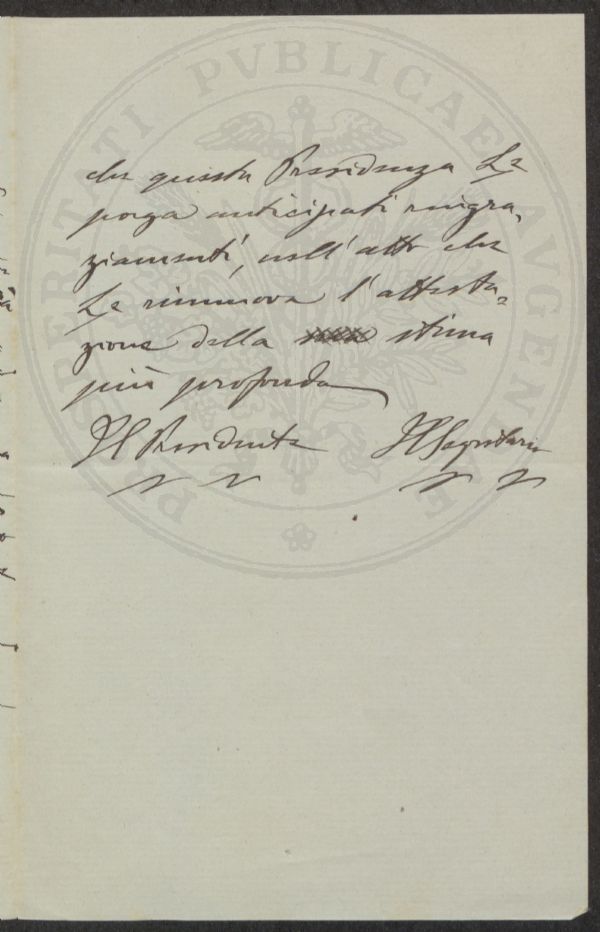 PROSPERITATI PVBLICAE AVGENDAE
che questa Presidenza Le
porga anticipati ringra-
ziamenti, nell'atto che
Le rinnova l'attesta-
zione della stima
più profonda
Il Presidente Il Segretario
N N N N